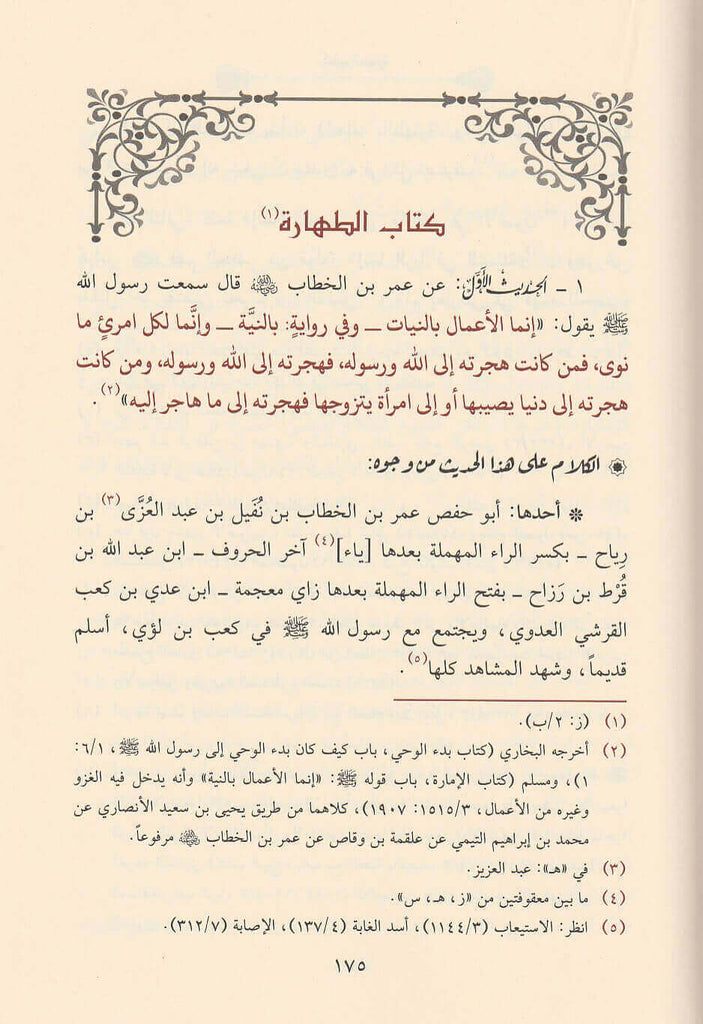 كتاب الطهارة(١)
١ - الحديث الأَوَّل: عن عمر بن الخطاب رضي الله عنه قال سمعت رسول الله
ﷺ يقول: «إنما الأعمال بالنيات - وفي روايةٍ: بالنيَّة - وإنَّما لكل امرئٍ ما
نوى، فمن كانت هجرته إلى الله ورسوله، فهجرته إلى الله ورسوله، ومن كانت
هجرته إلى دنيا يصيبها أو إلى امرأة يتزوجها فهجرته إلى ما هاجر إليه»(٢).
الكلام على هذا الحديث من وجوه:
* أحدها: أبو حفص عمر بن الخطاب بن نُفَيل بن عبد العُزَّى(٣) بن
رِياح - بكسر الراء المهملة بعدها [ياء](٤) آخر الحروف - ابن عبد الله بن
قُرْط بن رَزاح - بفتح الراء المهملة بعدها زاي معجمة - ابن عدي بن كعب
القرشي العدوي، ويجتمع مع رسول الله ﷺ في كعب بن لؤي، أسلم
قديماً، وشهد المشاهد كلها(٥).
(١) (ز: ٢/ب).
(٢) أخرجه البخاري (كتاب بدء الوحي، باب كيف كان بدء الوحي إلى رسول الله ﷺ، ٦/١:
١)، ومسلم (كتاب الإمارة، باب قوله ﷺ: «إنما الأعمال بالنية» وأنه يدخل فيه الغزو
وغيره من الأعمال، ١٥١٥/٣: ١٩٠٧)، كلاهما من طريق يحيى بن سعيد الأنصاري عن
محمد بن إبراهيم التيمي عن علقمة بن وقاص عن عمر بن الخطاب رضي الله عنه مرفوعاً.
(٣) في «هـ»: عبد العزيز.
(٤) ما بين معقوفتين من «ز، هـ، س».
(٥) انظر: الاستيعاب (١١٤٤/٣)، أسد الغابة (١٣٧/٤)، الإصابة (٣١٢/٧).
١٧٥